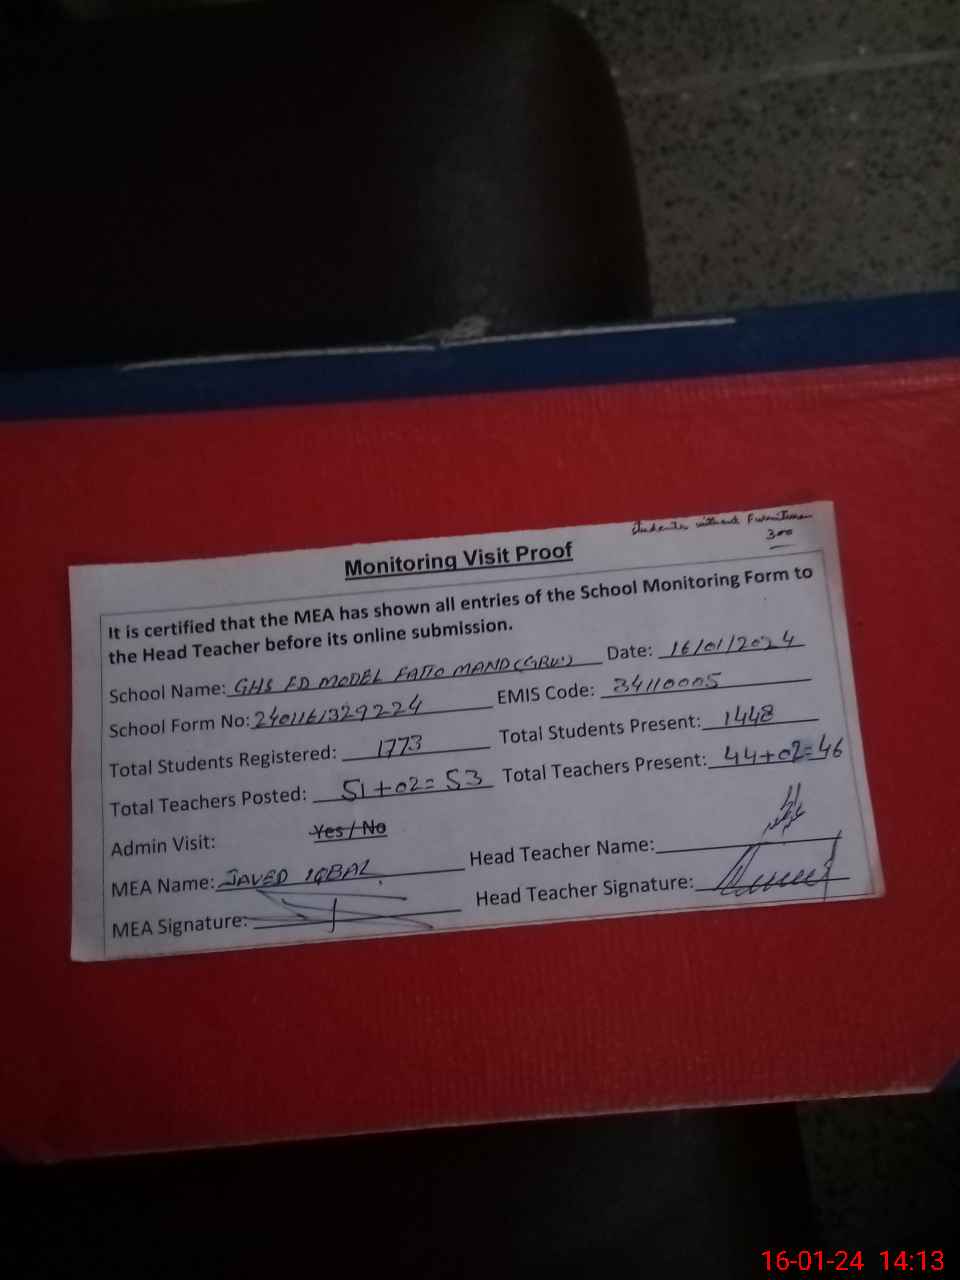 Students without Furniture
300
Monitoring Visit Proof
It is certified that the MEA has shown all entries of the School Monitoring Form to
the Head Teacher before its online submission.
School Name: GHS ED MODEL FATTO MAND (GRW) Date: 16/01/2024
School Form No: 2401161329224 EMIS Code: 34110005
Total Students Registered: 1773 Total Students Present: 1448
Total Teachers Posted: 51+02=53 Total Teachers Present: 44+02=46
Admin Visit: Yes / No
MEA Name: JAVED IQBAL Head Teacher Name:
MEA Signature: Head Teacher Signature:
16-01-24 14:13